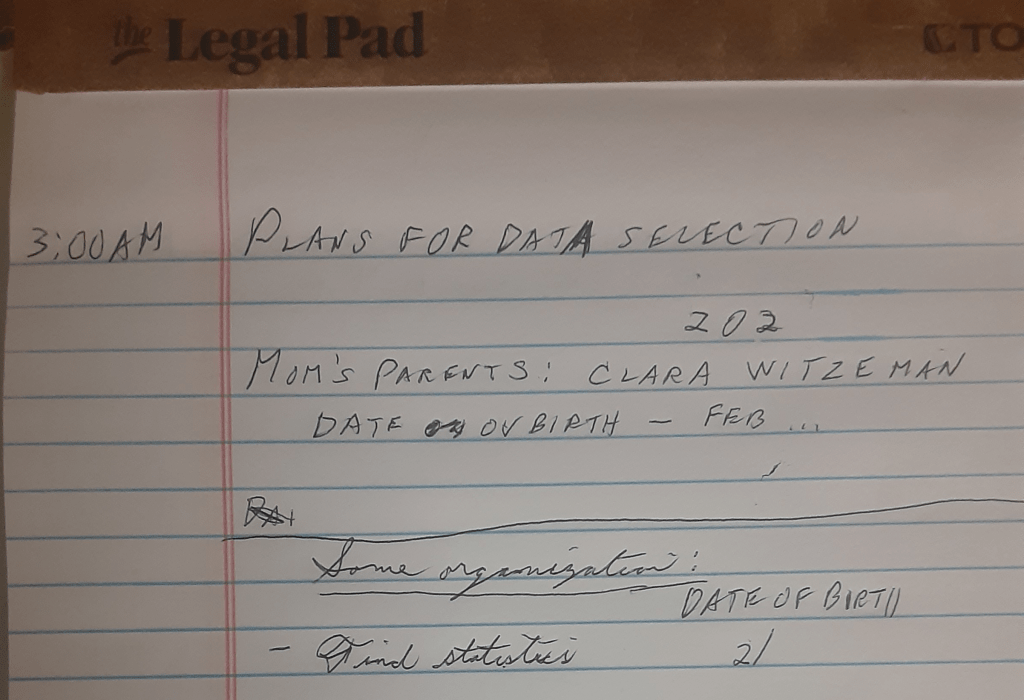 the Legal Pad
3:00AM PLANS FOR DATA SELECTION
202
MOM'S PARENTS: CLARA WITZEMAN
DATE OV BIRTH – FEB ...
Some organization:
DATE OF BIRTH
- Find statistics 2/